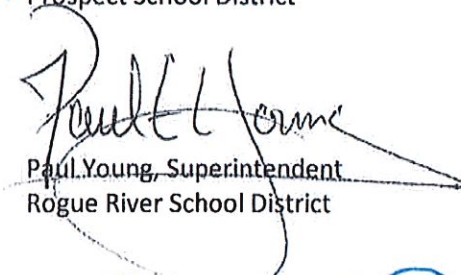 Prospect School District
Paul Young
Paul Young, Superintendent
Rogue River School District